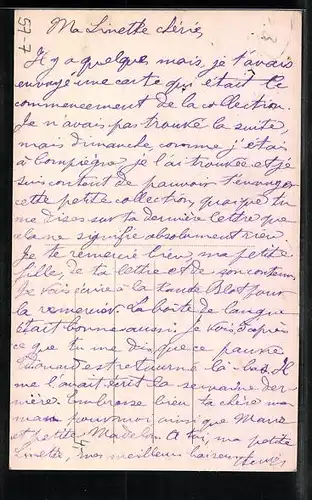 57-7
Ma Linette chérie,
Il y a quelques mois, je t'avais
envoyé une carte qui était le
commencement de la collection.
Je n'avais pas trouvé la suite,
mais dimanche, comme j'étais
à Compiègne, je l'ai trouvée et je
suis content de pouvoir t'envoyer
cette petite collection, quoique tu
me dises sur ta dernière lettre que
cela ne signifie absolument rien
Je te remercie bien, ma petite
fille, de ta lettre et de son contenu
Je vais écrire à la tante Blot pour
la remercier. La boîte de langue
était bonne aussi. Je vois d'après
ce que tu me dis que ce pauvre
est retourné là-bas. Il
me l'avait écrit la semaine der-
nière. Embrasse bien ta chère ma-
man pour moi ainsi que
et petite Madelon. A toi, ma petite
Linette, mes meilleurs baisers